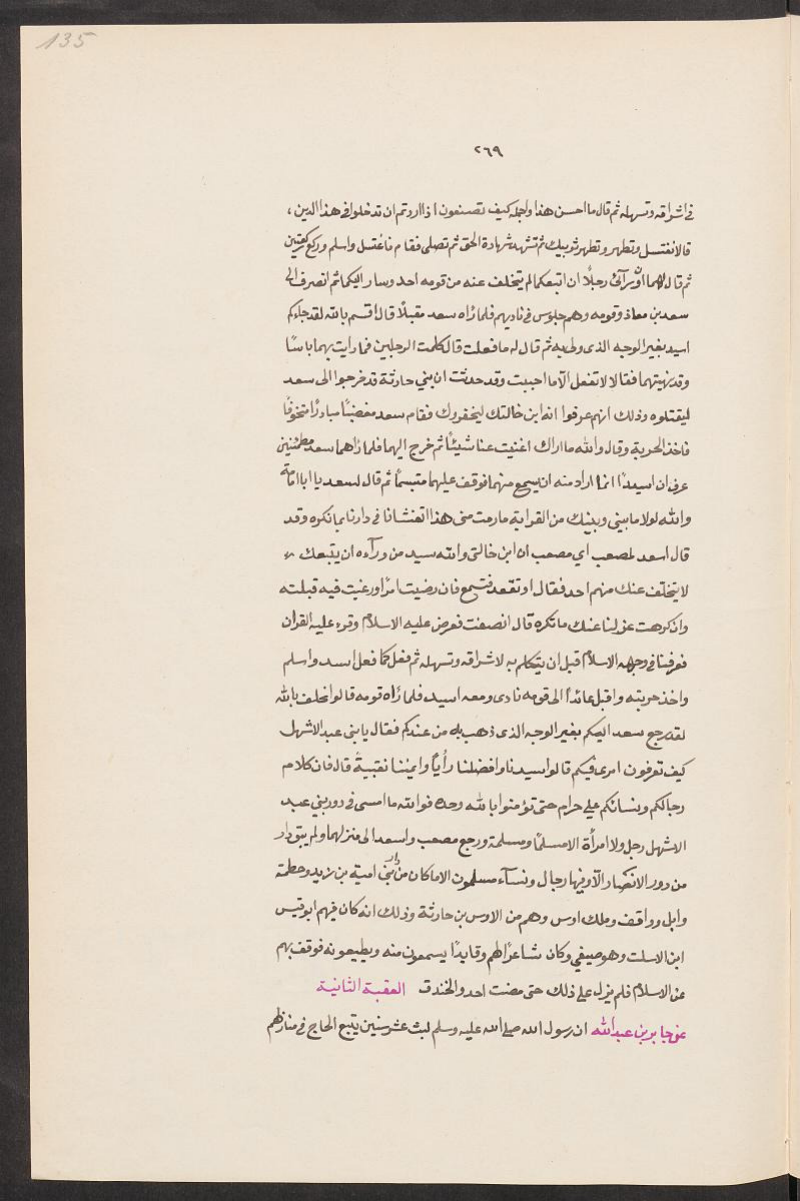 135
٢٦٩
فى اشراقه وتسهله ثم قال ما احسن هذا واجمله كيف تصنعون اذا اردتم ان تدخلوا فى هذا الدين ،
قالا تغتسل وتطهر وتطهر ثوبيك ثم تشهد شهادة الحق ثم تصلى فقام فاغتسل واسلم وركع ركعتين
ثم قال لهما ان ورآئى رجلًا ان اتبعكما لم يتخلف عنه من قومه احد وسارسل اليكما ثم انصرف الى
سعد بن معاذ وقومه وهم جلوس فى ناديهم فلما رآه سعد مقبلًا قال اقسم بالله لقد جاءكم
اسيد بغير الوجه الذى ولى به ثم قال له ما فعلت قال كلمت الرجلين فما رايت بهما باسًا
وقد نهيتهما فقالا لا تفعل الّا ما احببت وقد حدثت ان بني حارثة قد خرجوا الى سعد
ليقتلوه وذلك انهم عرفوا انه ابن خالتك ليخفروك فقام سعد مغضبًا مبادرًا متخوفًا
فاخذ الحربة وقال والله ما اراك اغنيت عنا شيئًا ثم خرج اليهما فلما رآهما سعد مطمئنين
عرف ان اسيدًا انما اراد منه ان يسمع منهما فوقف عليهما متبسمًا ثم قال لسعد يا ابا امامة
والله لولا ما بيني وبينك من القرابة ما رمت منى هذا اتغشانا فى دارنا بما نكره وقد
قال اسعد لمصعب اي مصعب ان ابن خالتى والله سيد من ورآءه ان يتبعك
لا يتخلف عنك منهم احد فقال او تقعد فتسمع فان رضيت امرًا ورغبت فيه قبلته
وان كرهت عزلنا عنك ما تكره قال انصفت فعرض عليه الاسلام وقرء عليه القران
فعرفنا فى وجهه الاسلام قبل ان يتكلم به لاشراقه وتسهله ثم فعل كما فعل اسيد واسلم
واخذ حربته واقبل عائدًا الى قومه نادى ومعه اسيد فلما رآه قومه قالوا نحلف بالله
لقد رجع سعد اليكم بغير الوجه الذى ذهب به من عندكم فقال يا بنى عبد الاشهل
كيف تعرفون امرى فيكم قالوا سيدنا وافضلنا رأيًا وايمننا نقيبةً قال فان كلام
رجالكم ونسائكم علي حرام حتى تؤمنوا بالله وحده فوالله ما امسى فى دور بني عبد
الاشهل رجل ولا امرأة الا مسلمًا ومسلمة ورجع مصعب واسعد الى منزلهما ولم يبق دار
من دور الانصار الّا وفيها رجال ونسآء مسلمون الا ما كان من دار بني امية بن زيد وحطمة
وابل وواقف وملك اوس وهم من الاوس بن حارثة وذلك انه كان فيهم ابو قيس
ابن الاسلت وهو صيفي وكان شاعرًا لهم وقايدًا يسمعون منه ويطيعونه فوقف بهم
عن الاسلام فلم يزل على ذلك حتى مضت احد والخندق العقبة الثانية
عن جابر بن عبد الله ان رسول الله صلى الله عليه وسلم لبث عشر سنين يتبع الحاج فى منازلهم